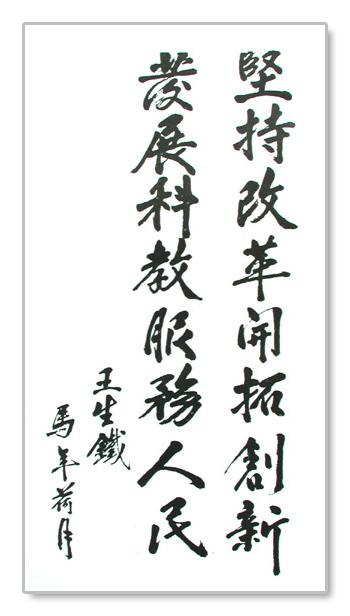 堅持改革開拓創新
發展科教服務人民
王生鐵
馬年荷月